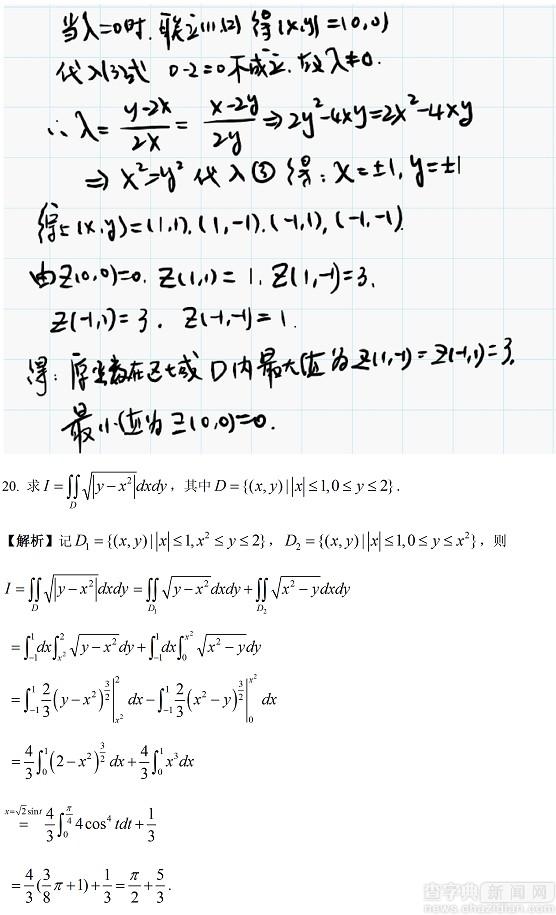 当λ=0时,联立(1),(2)得(x,y)=(0,0)
代入(3)式 0-2=0不成立.故λ≠0.
∴λ=\frac{y-2x}{2x}=\frac{x-2y}{2y}⇒2y²-4xy=2x²-4xy
⇒x²=y² 代入③得:x=±1,y=±1
得:(x,y)=(1,1),(1,-1),(-1,1),(-1,-1).
由z(0,0)=0,z(1,1)=1,z(1,-1)=3,
z(-1,1)=3,z(-1,-1)=1.
得:原函数在区域D内最大值为z(1,-1)=z(-1,1)=3,
最小值为z(0,0)=0.
20. 求I=∬_D √|y-x²|dxdy,其中D={(x,y)||x|≤1,0≤y≤2}.
【解析】记D₁={(x,y)||x|≤1,x²≤y≤2},D₂={(x,y)||x|≤1,0≤y≤x²},则
I=∬_D √|y-x²|dxdy=∬_{D₁} √(y-x²)dxdy+∬_{D₂} √(x²-y)dxdy
=∫_{-1}^{1}dx∫_{x²}^{2}√(y-x²)dy+∫_{-1}^{1}dx∫_{0}^{x²}√(x²-y)dy
=∫_{-1}^{1}\frac{2}{3}(y-x²)^{\frac{3}{2}}|_{x²}^{2}dx-∫_{-1}^{1}\frac{2}{3}(x²-y)^{\frac{3}{2}}|_{0}^{x²}dx
=\frac{4}{3}∫_{0}^{1}(2-x²)^{\frac{3}{2}}dx+\frac{4}{3}∫_{0}^{1}x³dx
\overset{x=√2sint}{=}\frac{4}{3}∫_{0}^{\frac{π}{4}}4cos⁴tdt+\frac{1}{3}
=\frac{4}{3}(\frac{3}{8}π+1)+\frac{1}{3}=\frac{π}{2}+\frac{5}{3}.
查字典新闻网
news.chazidian.com